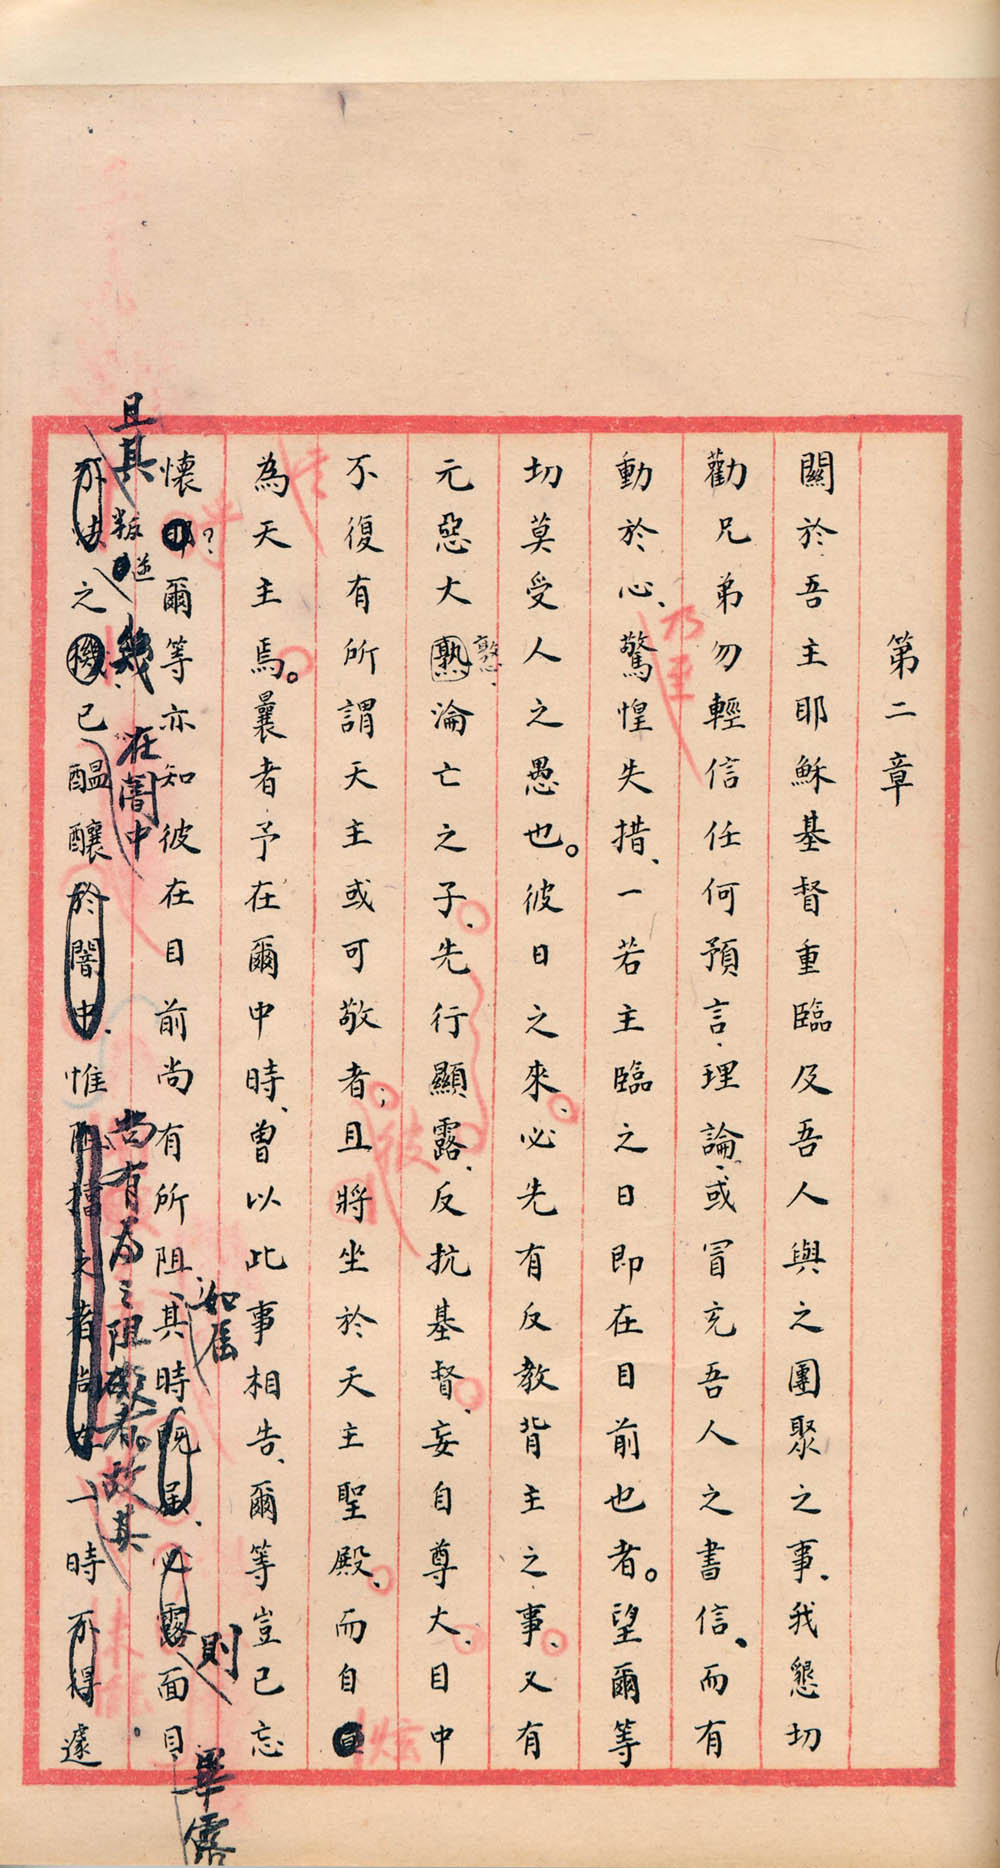 第二章
關於吾主耶穌基督重臨及吾人與之團聚之事、我懇切
勸兄弟勿輕信任何預言、理論、或冒充吾人之書信、而有
動於心、驚惶失措、一若主臨之日即在目前也者。望爾等
乃至
切莫受人之愚也。彼日之來、必先有反教背主之事、又有
元惡大熟淪亡之子、先行顯露、反抗基督、妄自尊大、目中
憝、
彼
不復有所謂天主或可敬者；且將坐於天主聖殿、而自
炫
為天主焉。曩者予在爾中時、曾以此事相告、爾等豈已忘
懷耶？爾等亦知彼在目前尚有所阻、其時既屆、必露面目
如屆
則
畢露
不法之機已醞釀於闇中、惟阻擋之者尚在、一時不得遽
且其
叛逆
幾
在闇中
尚有為之阻礙者。故其